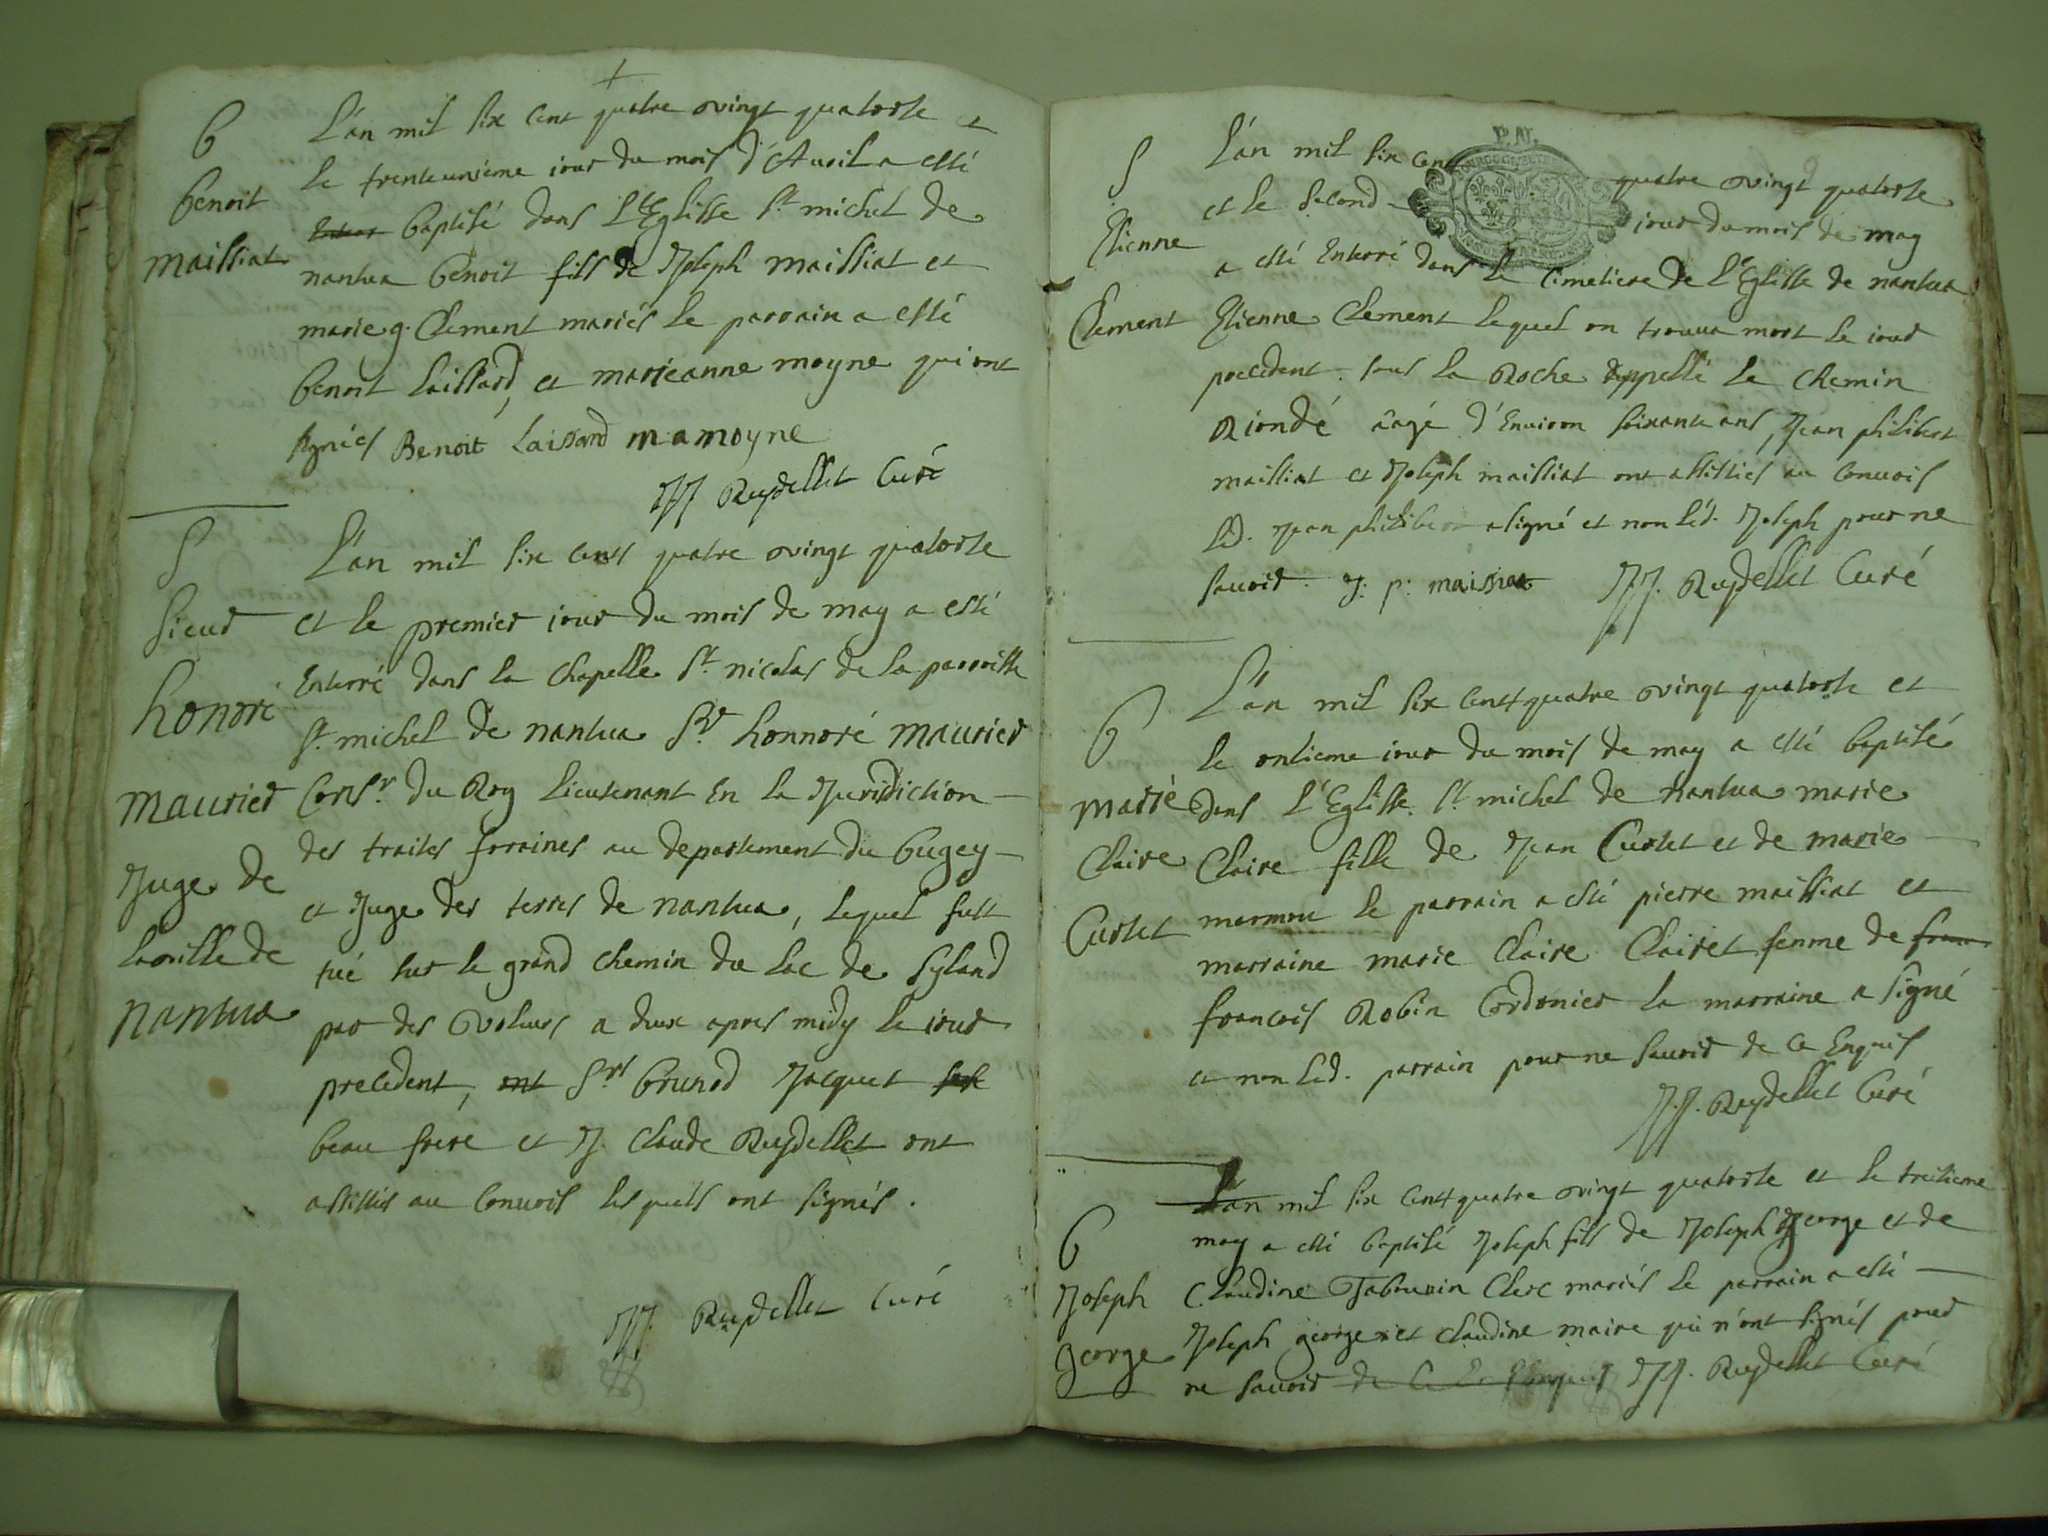 B
benoit
maissiat
L'an mil six cent quatre vingt quatorse et
le trenteunième jour du mois d'Avril a esté
baptisé dans L'Eglisse St michel de
nantua benoit fils de Joseph maissiat et
marie g. Clement mariés le parrain a esté
benoit laissard, et marieanne moyne qui ont
signés Benoit Laissard m a moyne
JJ Ruydellet Curé
S
Sieur
honoré
maurier
Juge de
la ville de
nantua
L'an mil six cents quatre vingt quatorse
et le premier jour du mois de may a esté
Enterré dans la Chapelle St nicolas de la parroisse
St michel de nantua Sr honnoré maurier
Consr. du Roy Lieutenant En la Juridiction
des traites forraines au departement du bugey
et Juge des terres de nantua, lequel fust
tué sur le grand chemin du Lac de Syland
par des voleurs a deux apres midy le jour
precedent, ont Srs brunod Jacquet
beau frere et J. Claude Ruydellet ont
assistés au Convois lesquels ont signés.
JJ. Ruydellet Curé
S
Etienne
Clement
P.N.
L'an mil six cent quatre vingt quatorse
et le second jour du mois de may
a esté Enterré dans le Cimetiere de L'Eglisse de nantua
Etienne Clement lequel on trouva mort le jour
precedent sous la Roche Appellé le Chemin
Riondé aagé d'Environ soixante ans, Jean philibert
maissiat et Joseph maissiat ont assistés au Convois
led. Jean philibert a signé et non led. Joseph pour ne
savoir. J: p: maissiat JJ. Ruydellet Curé
B
marie
Claire
Curtet
L'an mil six cent quatre vingt quatorse et
le onsieme jour du mois de may a esté baptisé
dans L'Eglisse St michel de nantua marie
Claire fille de Jean Curtet et de marie
le parrain a esté pierre maissiat et
marraine marie Claire Clairet femme de
francois Robin Cordonier la marraine a signé
et non led. parrain pour ne savoir de ce Enquis
J.J. Ruydellet Curé
B
Joseph
george
L'an mil six cent quatre vingt quatorse et le treisieme
may a esté baptisé Joseph fils de Joseph george et de
Claudine Clerc mariés le parrain a esté
Joseph george et claudine maire qui n'ont signés pour
ne savoir de ce Enquis JJ. Ruydellet Curé